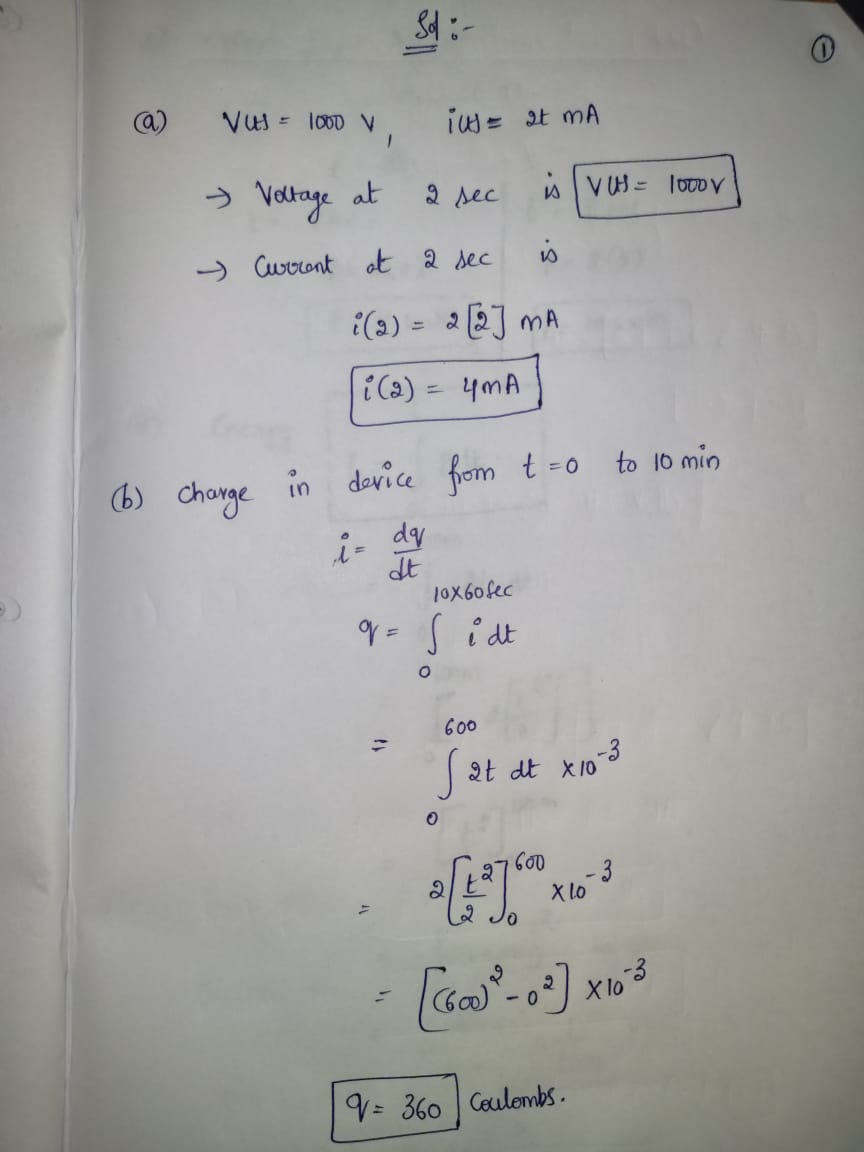 Sol :-
①
(a) V(t) = 1000 V, i(t) = 2t mA
→ Voltage at 2 sec is V(t) = 1000V
→ Current at 2 sec is
i(2) = 2[2] mA
i(2) = 4mA
(b) Charge in device from t=0 to 10 min
i = dq/dt
q = ∫₀^(10×60sec) i dt
= ∫₀^600 2t dt ×10⁻³
= 2[t²/2]₀^600 ×10⁻³
= [(600)² - 0²] ×10⁻³
q = 360 Coulombs.